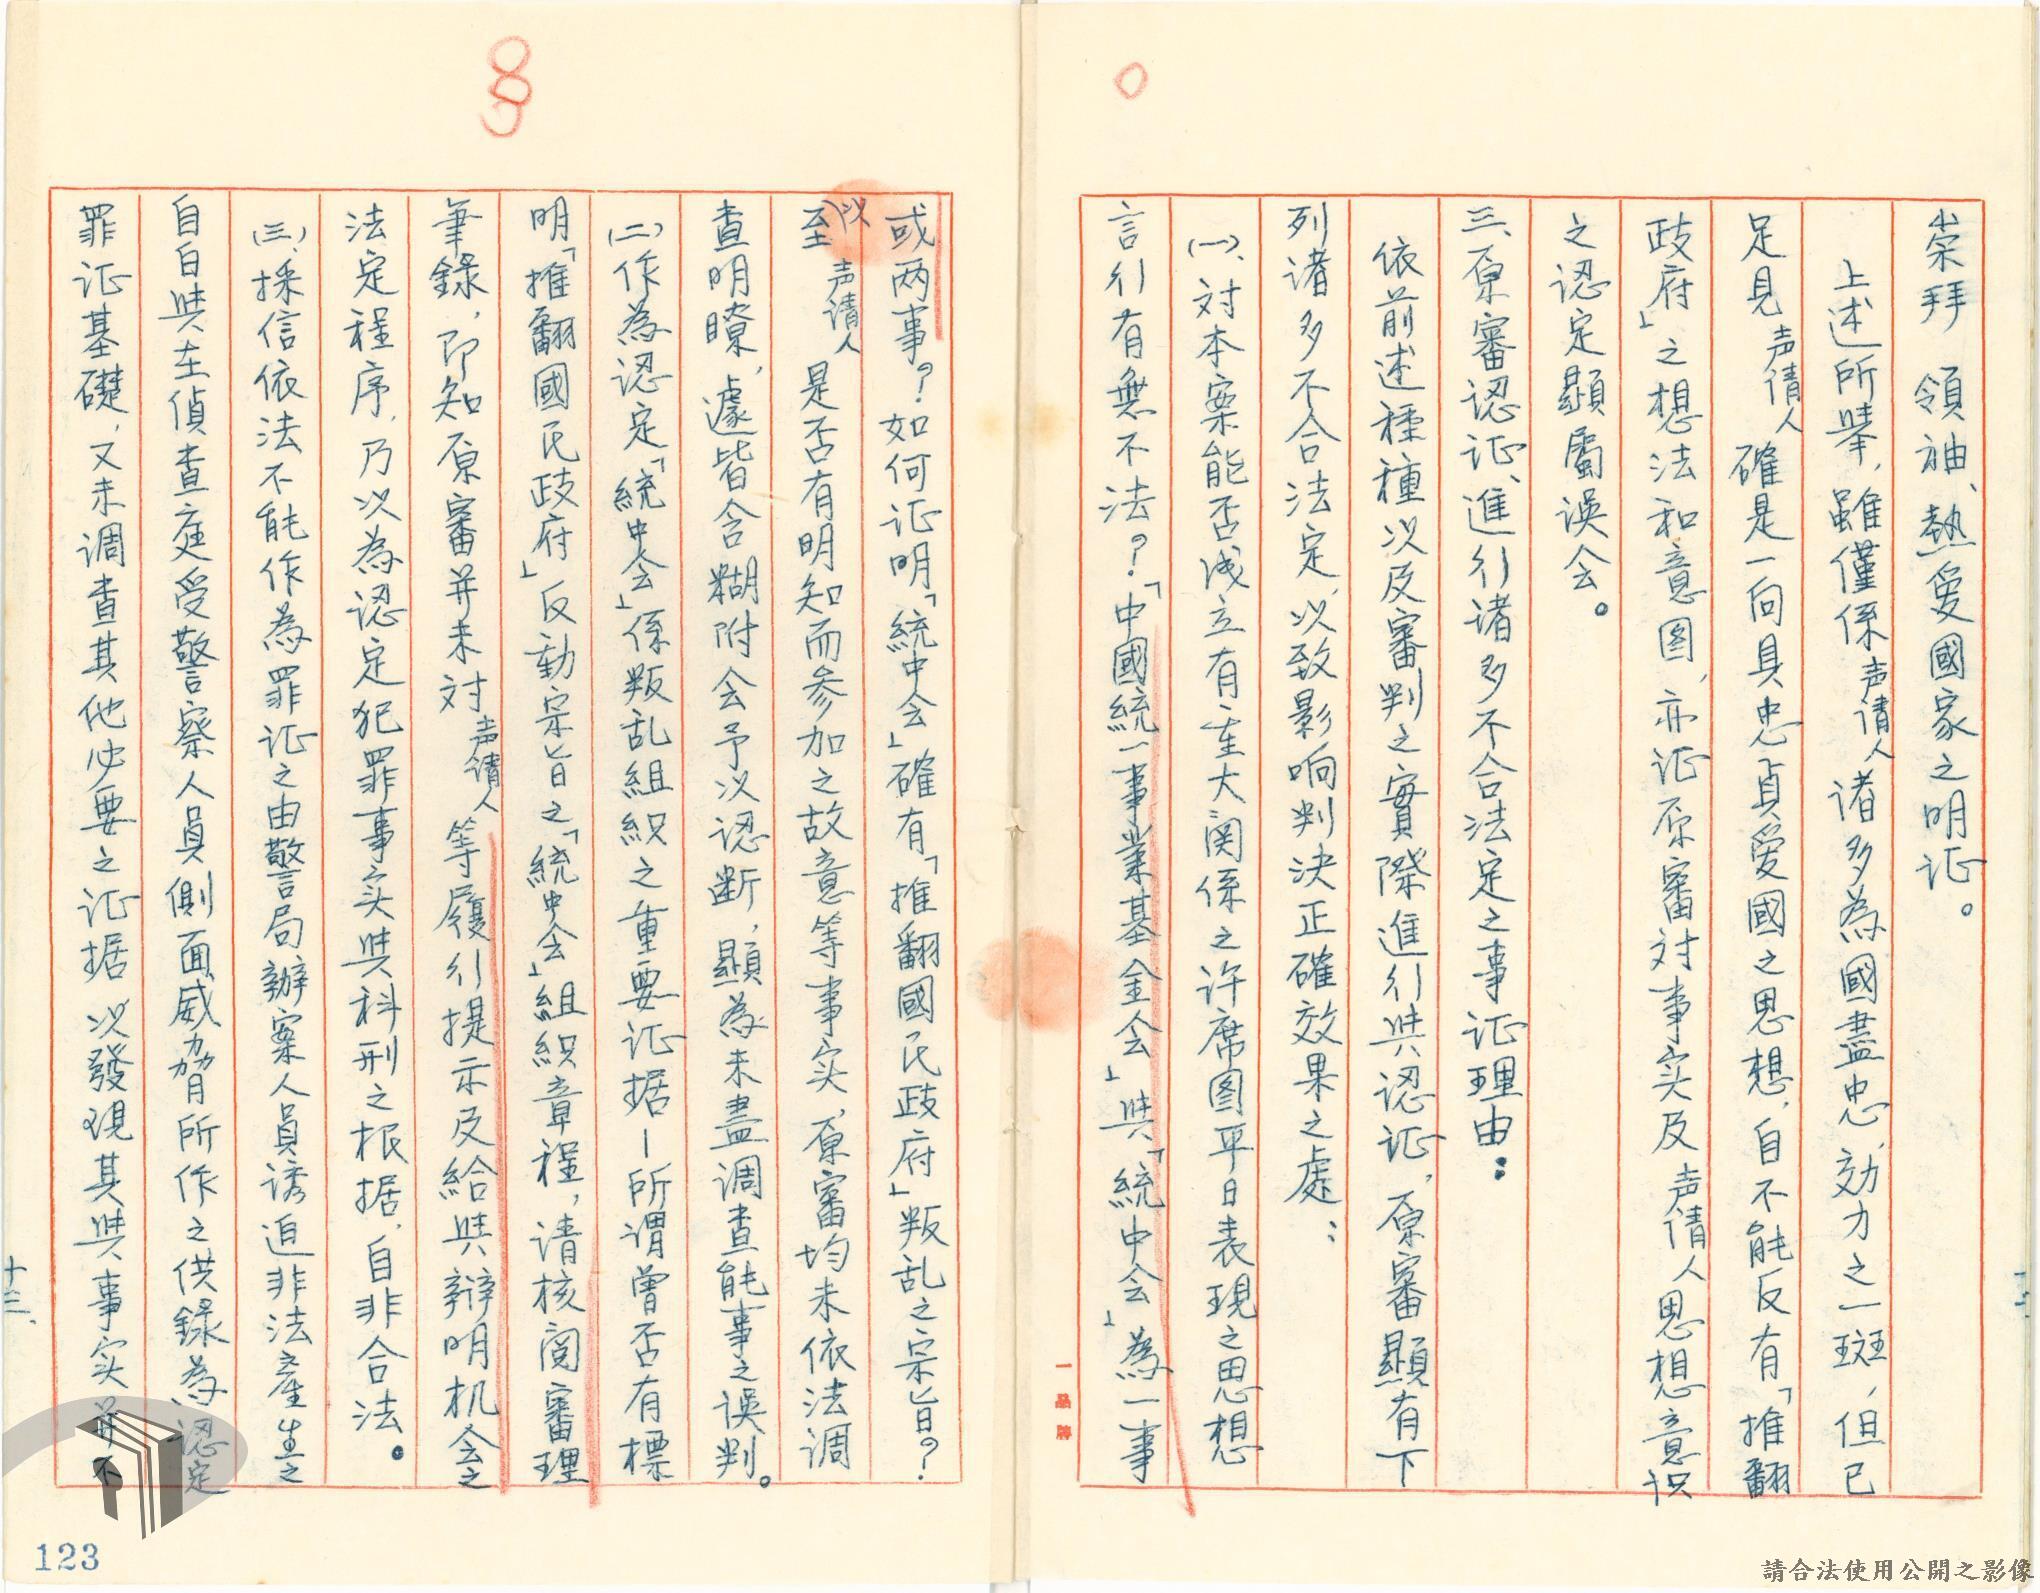 崇拜　領袖、熱爱國家之明证。
上述所举，雖僅係声请人諸多為國盡忠，効力之一斑，但已
足見声倩人確是一向具忠貞爱國之思想，自不能反有「推翻
政府」之想法和意图，亦证原審对事实及声倩人思想意识
之認定顯屬误会。
三、原審認证、進行诸多不合法定之事证理由：
依前述種種以及審判之實際進行與認证，原審顯有下
列诸多不合法定，以致影响判決正確效果之處：
㈠、对本案能否成立有重大関係之许席图平日表現之思想
言行有無不法？「中國統一事業基金会」與「統中会」為一事
或两事？如何证明「統中会」確有「推翻國民政府」叛乱之宗旨？
至（以声请人是否有明知而参加之故意等事实，原審均未依法调
查明瞭，遽皆含糊附会予以認断，顯為未盡调查能事之误判。
㈡、作為認定「統中会」係叛乱組織之重要证据－所謂曾否有標
明「推翻國民政府」反動宗旨之「統中会」組織章程，请核閲審理
筆錄，即知原審并未对声请人等履行提示及給與辯明机会之
法定程序，乃以為認定犯罪事实與科刑之根据，自非合法。
㈢、採信依法不能作為罪证之由警局辦案人員誘迫非法產生之
自白與在偵查庭受警察人員側面威脅所作之供錄為認定
罪证基礎，又未调查其他必要之证据以發現其與事实并不
十三、
一品牌
123
請合法使用公開之影像